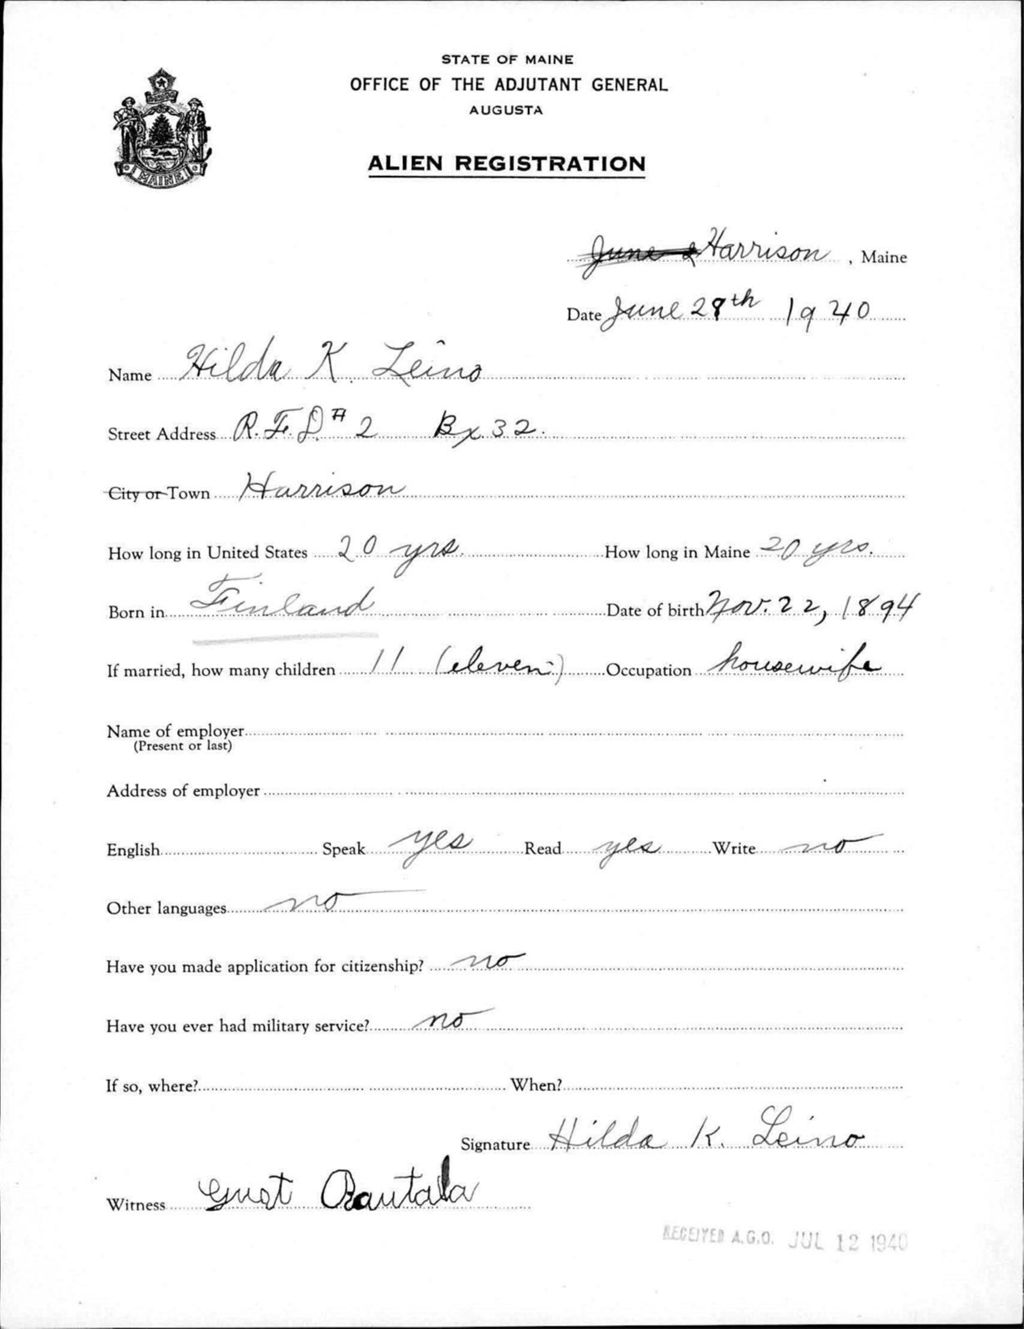 STATE OF MAINE
OFFICE OF THE ADJUTANT GENERAL
AUGUSTA
ALIEN REGISTRATION
MAINE
June 2 Harrison , Maine
Date June 28th 1940
Name Hilda K. Leino
Street Address R.F.D. # 2 Bx 32.
City or Town Harrison
How long in United States 20 yrs. How long in Maine 20 yrs.
Born in Finland Date of birth Nov. 22, 1894
If married, how many children 11 (eleven) Occupation housewife
Name of employer
(Present or last)
Address of employer
English Speak yes Read yes Write no
Other languages no
Have you made application for citizenship? no
Have you ever had military service? no
If so, where? When?
Signature Hilda K. Leino
Witness Gust Rautala
RECEIVED A.G.O. JUL 12 1940